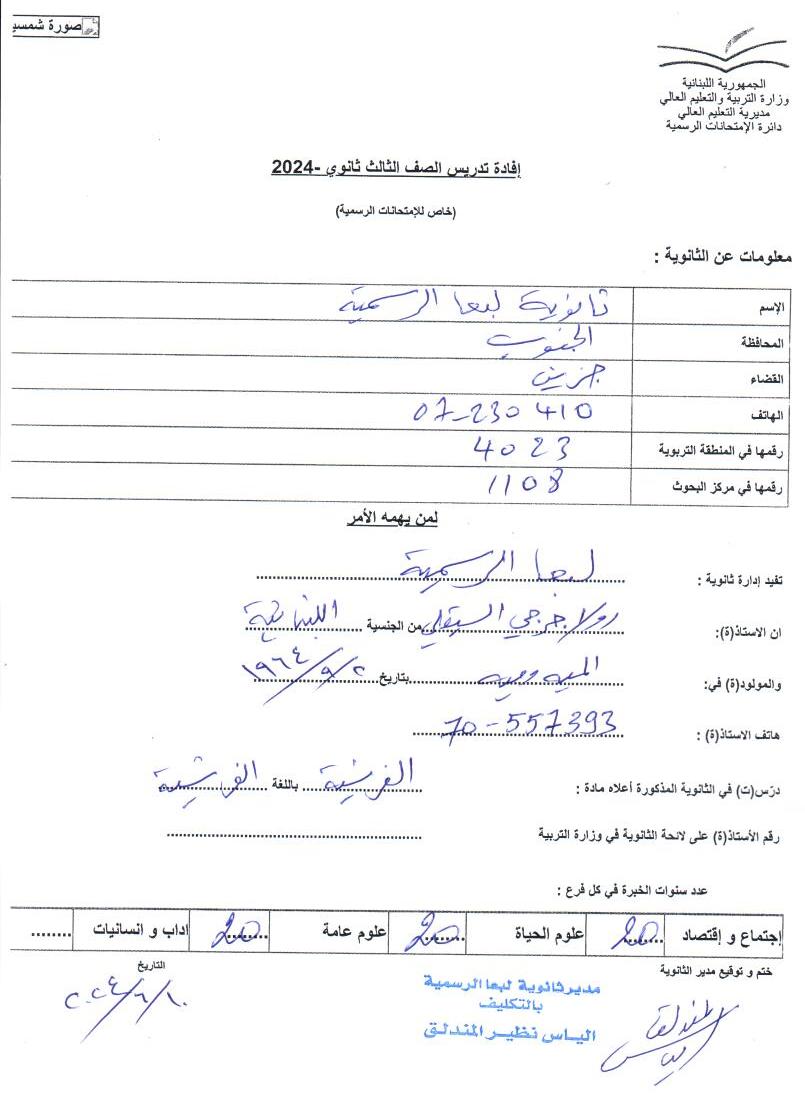 صورة شمسية
الجمهورية اللبنانية
وزارة التربية والتعليم العالي
مديرية التعليم العالي
دائرة الإمتحانات الرسمية
إفادة تدريس الصف الثالث ثانوي -2024
(خاص للإمتحانات الرسمية)
معلومات عن الثانوية :
الإسم ثانوية لبعا الرسمية
المحافظة الجنوب
القضاء جزين
الهاتف 07-230 410
رقمها في المنطقة التربوية 4023
رقمها في مركز البحوث 1108
لمن يهمه الأمر
تفيد إدارة ثانوية : لبعا الرسمية
ان الاستاذ(ة): رولا جرجي السيقلي من الجنسية اللبنانية
والمولود(ة) في: المية ومية بتاريخ ٢/٩/١٩٦٤
هاتف الاستاذ(ة) : 70-557393
درّس(ت) في الثانوية المذكورة أعلاه مادة : الفرنسية باللغة الفرنسية
رقم الأستاذ(ة) على لائحة الثانوية في وزارة التربية
عدد سنوات الخبرة في كل فرع :
إجتماع و إقتصاد 20 علوم الحياة 20 علوم عامة 20 اداب و انسانيات ........
ختم و توقيع مدير الثانوية التاريخ
مدير ثانوية لبعا الرسمية
بالتكليف
الياس نظير المندلق
المندلق
الياس
٢٠٢٤/٦/١٠